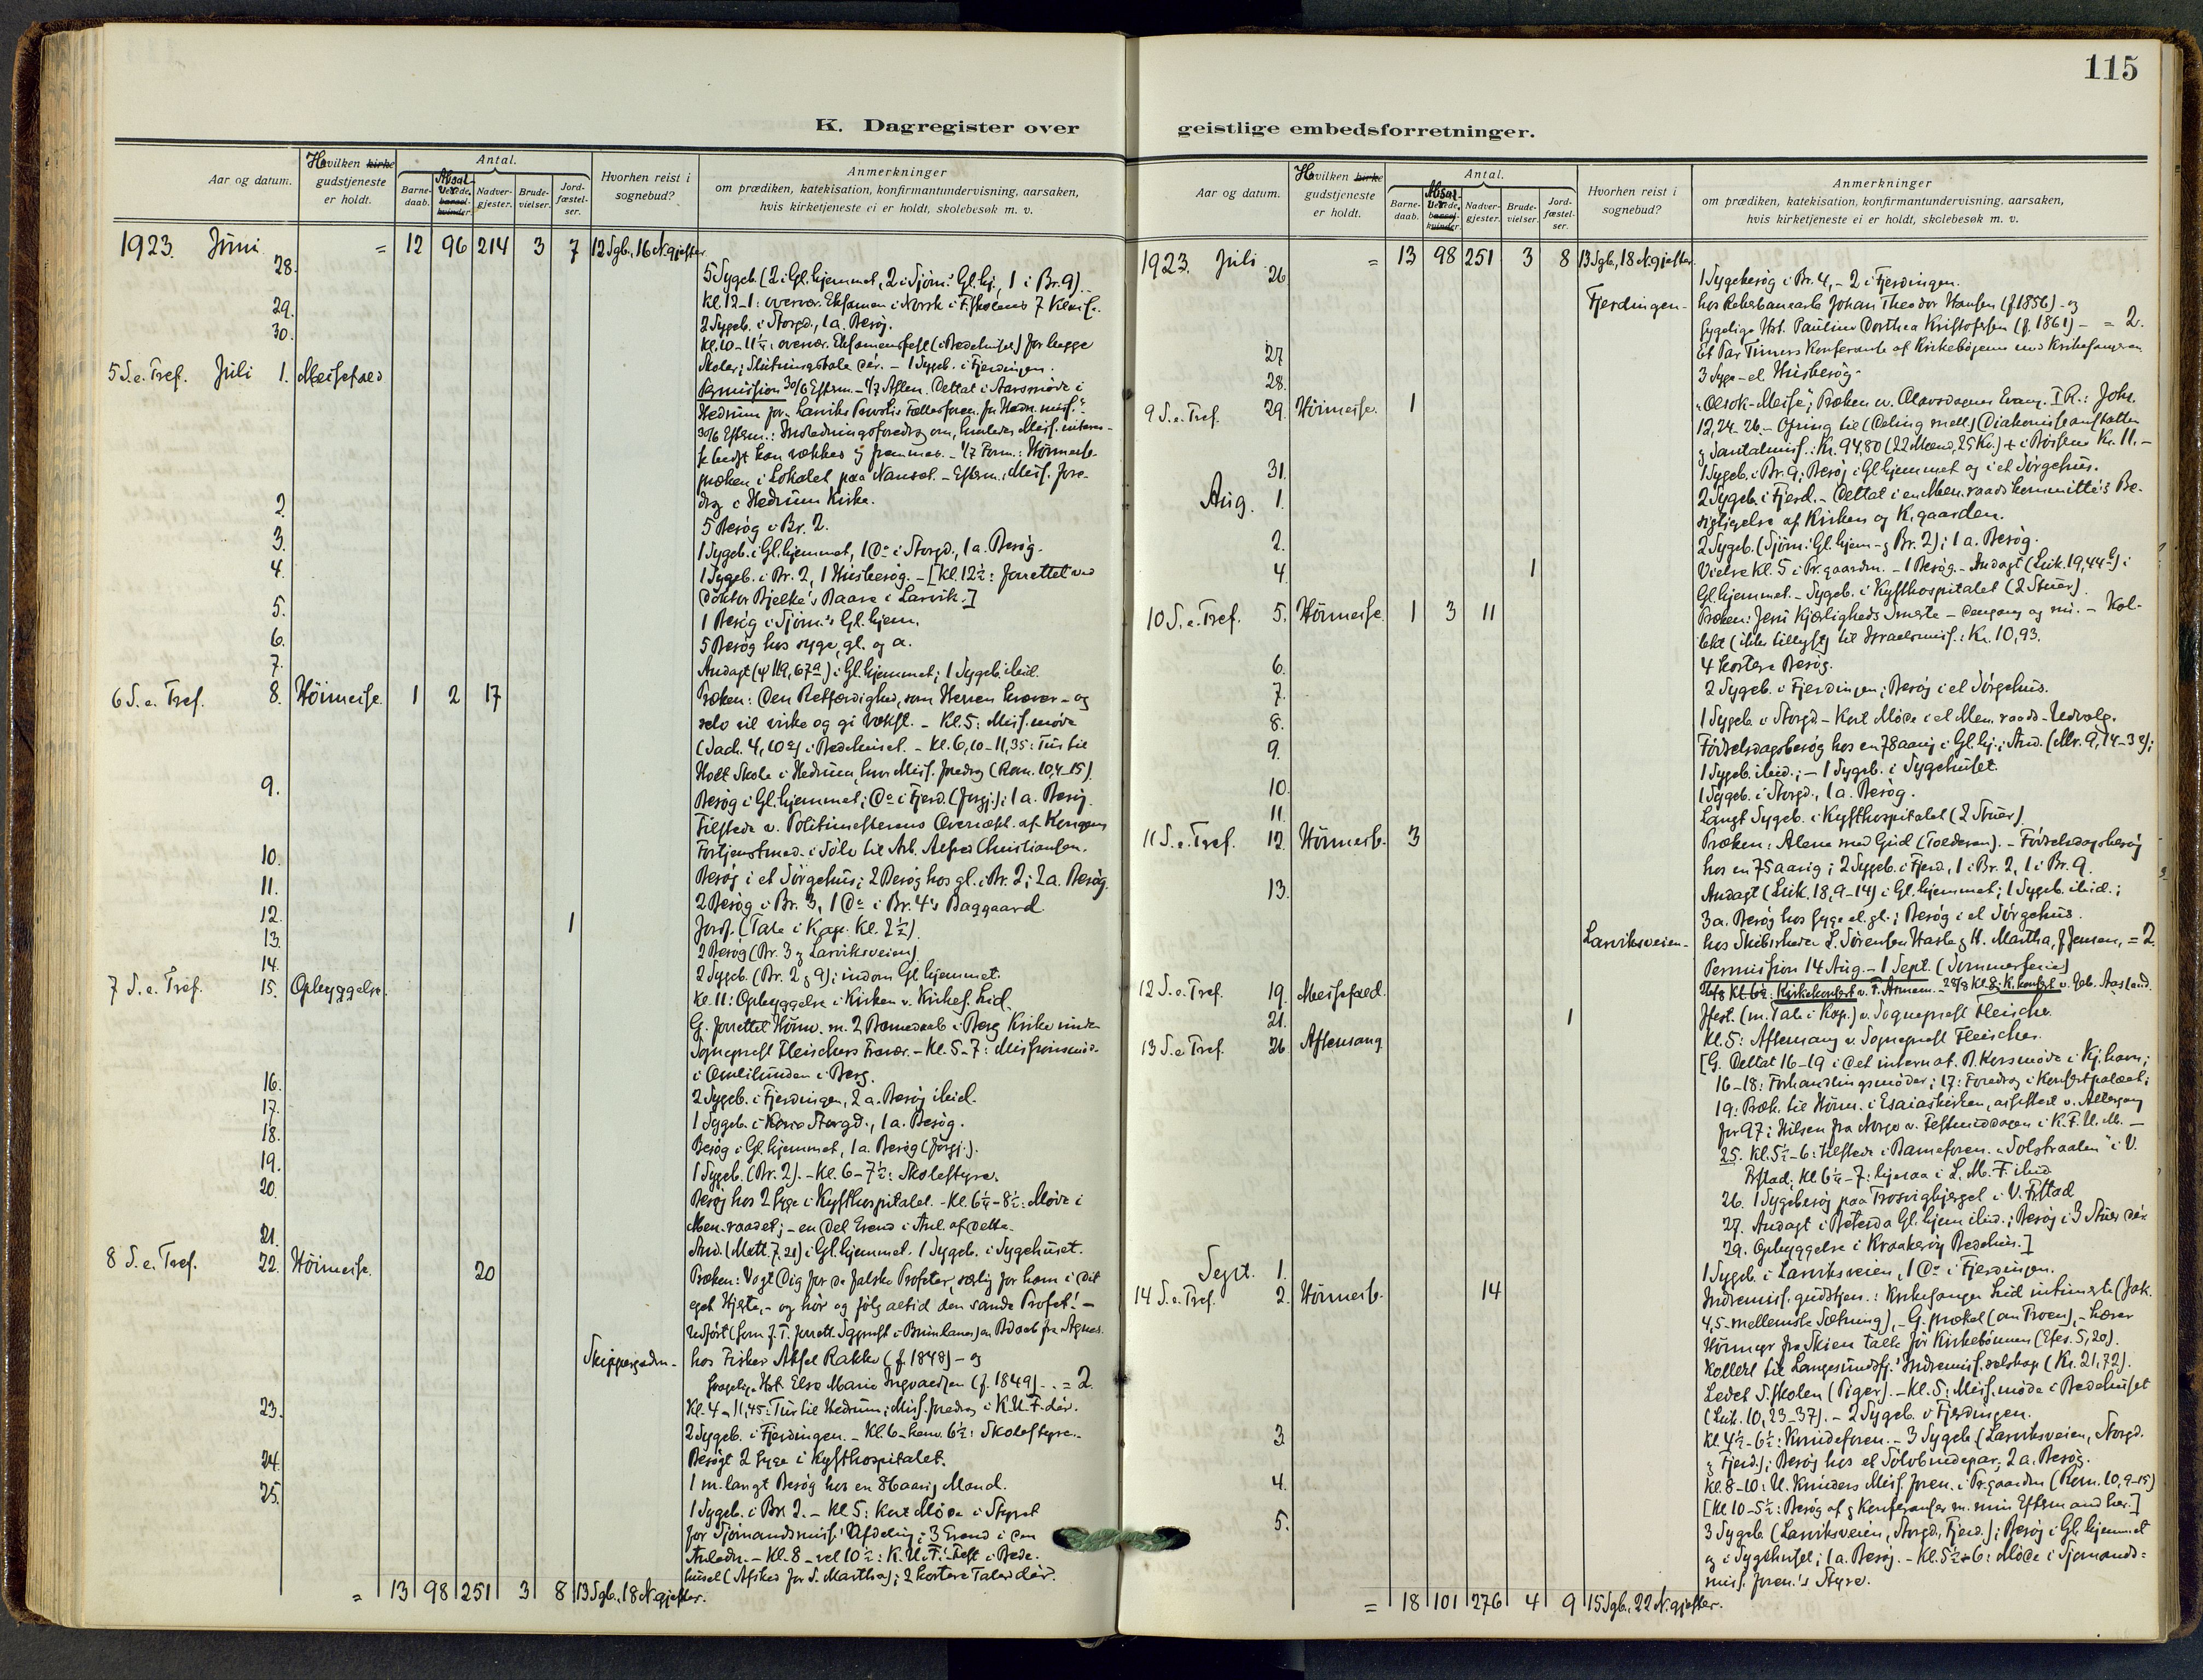 115
K. Dagregister over
geistlige embedsforretninger.
Aar og datum.
Hvilken kirke gudstjeneste er holdt.
Antal.
Barnedaab.
Nadvergjester.
Brudevielser.
Jordfæstelser.
Hvorhen reist i sognebud?
Anmerkninger
om prædiken, katekisation, konfirmantundervisning, aarsaken,
hvis kirketjeneste ei er holdt, skolebesøk m. v.
1923. Juni = 12 96 214 3 7 12 Sgb., 16 N.gjester
28. 5 Sygeb. (2 i Gl.hjemmet, 2 i Sjøm.' Gl.hj., 1 i Br. 9).
Kl. 12-1: overvær. Eksamen i Norsk i F.skolens 7 Klasse.
29. 2 Sygeb. i Storgd., 1 a. Besøg.
30. Kl. 10-11¼: overvær. Eksamensfest (i Bedehuset) for begge
Skoler; Slutningstale dér. - 1 Sygeb. i Fjerdingen.
5 S. e. Tref. Juli 1. Messefald
Permission 30/6 Efterm. - 1/7 Aften. Deltat i Aarsmøde i
Hedrum for Larviks Provstis Fællesforen. for Hedn. miss.
30/6 Efterm.: Indledningsforedrag om, hvorledes Miss. interes-
se bedst kan vækkes og fremmes. - 1/7 Form.: Høimesse-
præken i Lokalet paa Nanset. - Efterm.: Miss. fore-
drag i Hedrum Kirke.
2. 5 Besøg i Br. 2.
3. 1 Sygeb. i Gl.hjemmet, 1 Do i Storgd., 1 a. Besøg.
4. 1 Sygeb. i Br. 2, 1 Husbesøg. - [Kl. 12½: forrettet ved
Doktor Bjelke's Baare i Larvik.]
5. 1 Besøg i Sjøm.'s Gl.hjem.
6. 5 Besøg hos syge, gl. og a.
7. Andagt (ψ 119, 67a) i Gl.hjemmet; 1 Sygeb. ibid.
6 S. e. Tref. 8. Høimesse. 1 2 17
Præken: Den Retfærdighed, som Herren kræver - og
selv vil virke og gi Vækst. - Kl. 5: Miss. møde
(Sach. 4, 10a) i Bedehuset. - Kl. 6,10-11,35: Tur til
Holt Skole i Hedrum, hvor Miss. foredrag (Rom. 10,4-15).
9. Besøg i Gl.hjemmet; Do i Fjerd. (forgj.); 1 a. Besøg.
Tilstede v. Politimesterens Overrækk. af Kongens
Fortjenstmed. i Sølv til Arb. Alfred Christiansen.
10. Besøg i et Sørgehus; 2 Besøg hos gl. i Br. 2; 2 a. Besøg.
11. 2 Besøg i Br. 3, 1 Do i Br. 4's Baggaard.
12. 1 Jordf. (Tale i Kap. Kl. 2½).
13. 2 Besøg (Br. 3 og Larviksveien).
14. 2 Sygeb. (Br. 2 og 9); indom Gl.hjemmet.
7 S. e. Tref. 15. Opbyggelse.
Kl. 11: Opbyggelse i Kirken v. Kirkes. Lid.
G. forrettet Høim. m. 2 Barnedaab i Berg Kirke under
Sogneprest Fleischers Fravær. - Kl. 5-7: Missionsmøde
i Omlilunden i Berg.
16. 2 Sygeb. i Fjerdingen, 2 a. Besøg ibid.
17. 1 Sygeb. i Storgd., 1 a. Besøg.
18. Besøg i Gl.hjemmet, 1 a. Besøg (forgj.).
19. 1 Sygeb. (Br. 2). - Kl. 6-7½: Skolestyre.
20. Besøg hos 2 Syge i Kysthospitalet. - Kl. 6¼-8½: Møde i
Men.raadet; - en Del Ærend i Anl. af dette.
21. And. (Matt. 7,21) i Gl.hjemmet. 1 Sygeb. i Sygehuset.
8 S. e. Tref. 22. Høimesse. 20
Præken: Vogt Dig for de falske Profeter, særlig for ham i dit
eget Hjerte, - og hør og følg altid den sande Profet! -
Skippergaden - hos Fisker Aksel Bakke (f. 1848) - og
svagelige Hst. Else Marie Ingvaldsen (f. 1849) .. = 2.
23. Kl. 4-11,45: Tur til Hedrum; Miss. foredrag i K.U.F. dér.
2 Sygeb. i Fjerdingen. - Kl. 6 - henv. 6½: Skolestyre.
24. Besøgt 2 Syge i Kysthospitalet.
25. 1 m. langt Besøg hos en 86 aarig Mand.
1 Sygeb. i Br. 2. - Kl. 5: Kort Møde i Styret
for Sjømandsmiss.' Afdeling; 3 Ærend i den
Anledn. - Kl. 8 - vel 10½: K.U.F.'-Fest i Bede-
huset (Afsked for S. Martha); 2 kortere Taler dér.
= 13 98 251 3 8 13 Sgb., 18 N.gjester.
Aar og datum.
Hvilken kirke gudstjeneste er holdt.
Antal.
Barnedaab.
Nadvergjester.
Brudevielser.
Jordfæstelser.
Hvorhen reist i sognebud?
Anmerkninger
om prædiken, katekisation, konfirmantundervisning, aarsaken,
hvis kirketjeneste ei er holdt, skolebesøk m. v.
1923. Juli = 13 98 251 3 8 13 Sgb., 18 N.gjester.
26. 1 Sygebesøg i Br. 4, - 2 i Fjerdingen.
Fjerdingen - hos Johan Theodor Hansen (f. 1856) - og
sygelige Hst. Pauline Dorthea Kristofersen (f. 1861) - = 2.
27. Et Par Timers Konferanse af Kirkebøgerne med Kirkesangeren
28. 3 Syge- el. Husbesøg.
9 S. e. Tref. 29. Høimesse. 1
"Olsok-Messe"; Præken ov. Olavsdagens Evang. I R.: Joh.
12,24-26. - Ofring til (Deling mell.) Diakonisseanstalten
og Santalmiss.: Kr. 94,80 (22 Mænd, 25 Kv.) + i Bøssene Kr. 11.-
31. 1 Sygeb. i Br. 9; Besøg i Gl.hjemmet og i et Sørgehus.
Aug. 1. 2 Sygeb. i Fjerd. - Deltat i en Men.raadskommitté's Be-
sigtigelse af Kirken og K.gaarden.
2. 2 Sygeb. (Sjøm.' Gl.hjem - og Br. 2); 1 a. Besøg.
4. 1 Vielse Kl. 5 i Pr.gaarden. - 1 Besøg. - Andagt (Luk. 19,44b) i
Gl.hjemmet. - Sygeb. i Kysthospitalet (2 Stuer).
10 S. e. Tref. 5. Høimesse 1 3 11
Præken: Jesu Kjærligheds Smerte - dengang og nu. - Kol-
lekt (ikke tillyst) til Israelsmiss.: Kr. 10,93.
6. 4 kortere Besøg.
7. 2 Sygeb. i Fjerdingen; Besøg i et Sørgehus.
8. 1 Sygeb. i Storgd. - Kort Møde i et Men.raads-Udvalg.
9. Fødselsdagsbesøg hos en 78 aarig i Gl.hj.; And. (Mr. 9,14-32);
1 Sygeb. ibid.; - 1 Sygeb. i Sygehuset.
10. 1 Sygeb. i Storgd., 1 a. Besøg.
11. Langt Sygeb. i Kysthospitalet (2 Stuer).
11 S. e. Tref. 12. Høimesse. 3
Præken: Alene med Gud (Tolderen). - Fødselsdagsbesøg
hos en 75 aarig; 2 Sygeb. i Fjerd., 1 i Br. 2, 1 i Br. 9.
13. Andagt (Luk. 18,9-14) i Gl.hjemmet; 1 Sygeb. ibid.;
3 a. Besøg hos syge el. gl.; Besøg i et Sørgehus.
Larviksveien - hos Skibsreder L. Sørensen Hasle og H. Martha, f. Jensen, = 2.
Permission 14 Aug. - 1 Sept. (Sommerferie)
Kl. 6½: Kirkekonsert v. F. - 28/8 Kl. 8: K. konsert v. Geb. Aasland.
12 S. e. Tref. 19. Messefald.
21. 1 Jfest. (m. Tale i Kap.) v. Sogneprest Fleischer.
13 S. e. Tref. 26. Aftensang
Kl. 5: Aftensang v. Sogneprest Fleischer.
[G. Deltat 16-19 i det internat. B. Korsmøde i Kj.havn;
16-18: Forhandlingsmøder; 17: Foredrag i Konsertpalæet;
19: Præk. til Høim. i Esaiaskirken, assisteret v. Altergang
for 97; Hilsen fra Norge v. Festmiddagen i K.F.U.M. -
25. Kl. 5½-6: tilstede i Barneforen. "Solstraalen" i V.
Fr.stad; Kl. 6¼-7: ligesaa i L.M.F. ibid.
26. 1 Sygebesøg paa Trosvigbjerget i V. Fr.stad
27. Andagt i Betesda Gl.hjem ibid.; Besøg i 3 Stuer dér.
29. Opbyggelse i Kraakerøy Bedehus.]
Sept. 1. 1 Sygeb. i Larviksveien, 1 Do i Fjerdingen.
14 S. e. Tref. 2. Høimesse. 14
Indremiss. gudstjen.: Kirkesanger Lid intimerte (Jak.
4,5 - mellemste Sætning), - G. prækte (om Troen), - Lærer
Høimyr fra Skien talte før Kirkebønnen (Efes. 5,20).
Kollekt til Langesundsfj.' Indremiss. selskap (Kr. 21,72).
Ledet S.skolen (Piger). - Kl. 5: Miss. møde i Bedehuset
(Luk. 10,23-37). - 2 Sygeb. i Fjerdingen.
3. Kl. 4½-6½: Kvindeforen. - 3 Sygeb. (Larviksveien, Storgd.
og Fjerd.); Besøg hos et Sølvbrudepar; 2 a. Besøg.
4. Kl. 8-10: U. Kvinders Miss. foren. i Pr.gaarden (Rom. 10,9-15)
[Kl. 10-5½: Besøg af og Konferanser m. min Eftermand her.]
5. 3 Sygeb. (Larviksveien, Storgd., Fjerd.); Besøg i Gl.hjemmet
og i Sygehuset; 1 a. Besøg. - Kl. 5½-6: Møde i Sjømands-
miss. foren.'s Styre.
= 18 101 276 4 9 15 Sgb., 22 N.gjester.